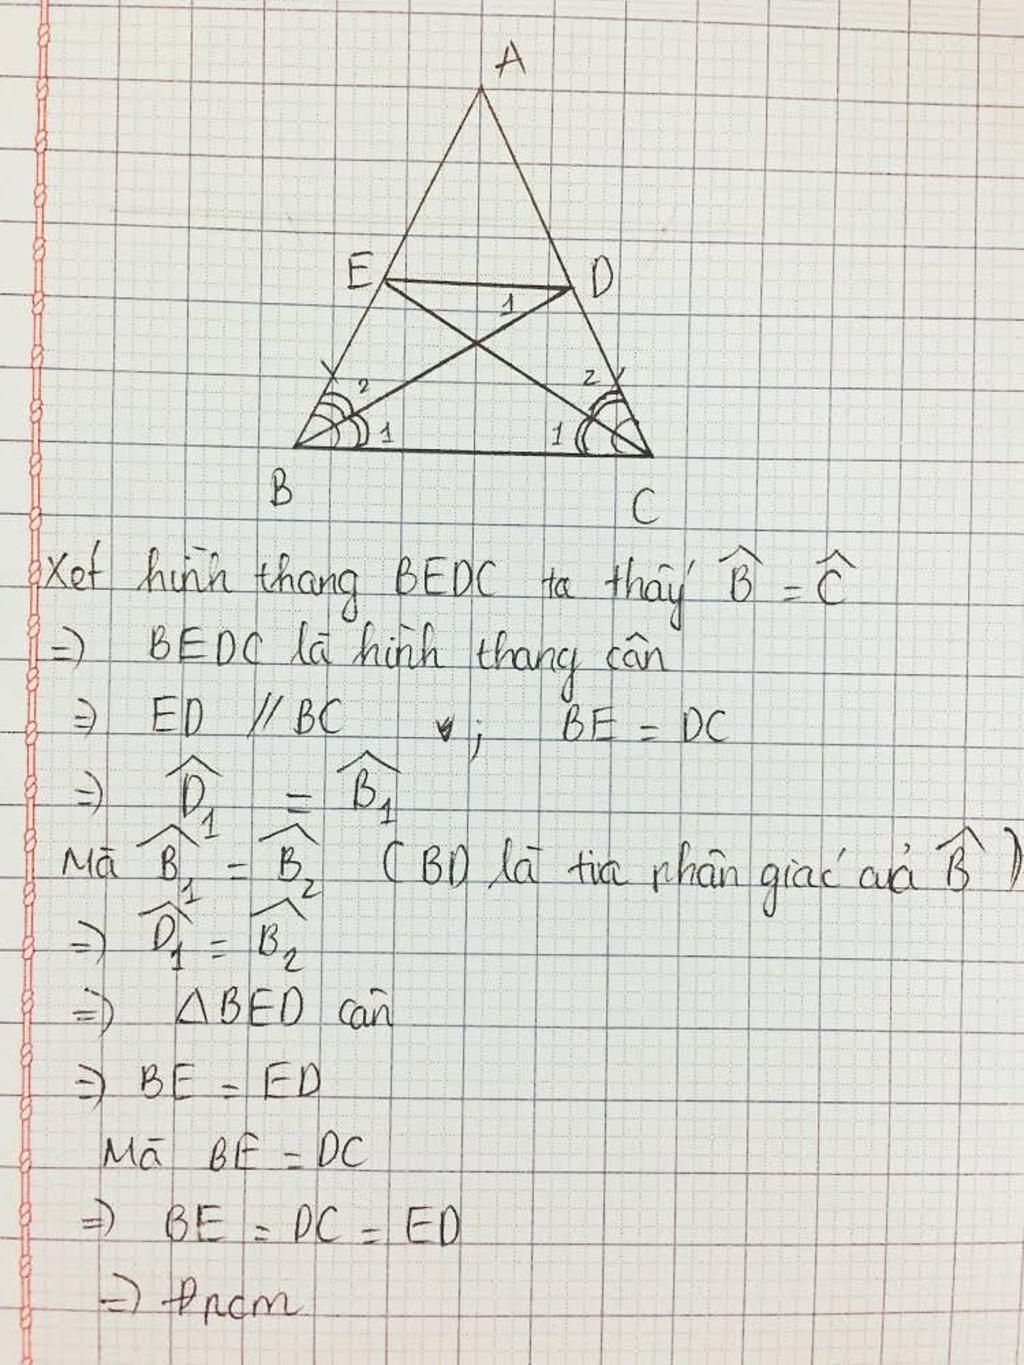 A
E
D
1
2
2
1
1
B
C
Xét hình thang BEDC ta thấy B̂ = Ĉ
=> BEDC là hình thang cân
=> ED // BC ; BE = DC
=> D̂₁ = B̂₁
Mà B̂₁ = B̂₂ (BD là tia phân giác của B̂)
=> D̂₁ = B̂₂
=> ΔBED cân
=> BE = ED
Mà BE = DC
=> BE = DC = ED
=> đpcm